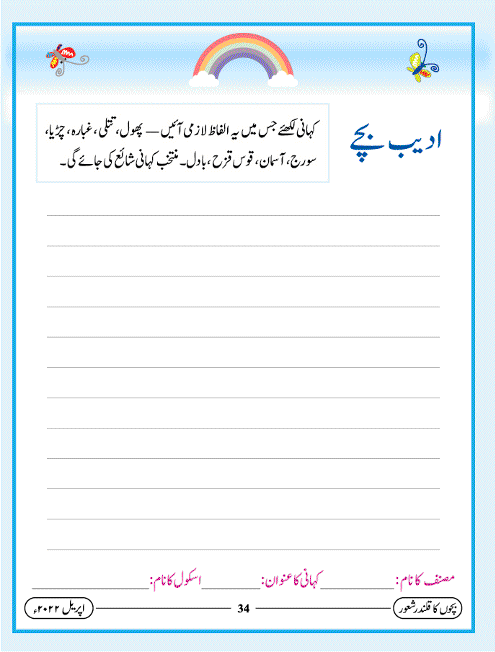 ادیب بچے
کہانی لکھئے جس میں یہ الفاظ لازمی آئیں — پھول، تتلی، غبارہ، چڑیا،
سورج، آسمان، قوس قزح، بادل۔ منتخب کہانی شائع کی جائے گی۔
مصنف کا نام: کہانی کا عنوان: اسکول کا نام:
بچوں کا قلندر شعور 34 اپریل ۲۰۲۲ء